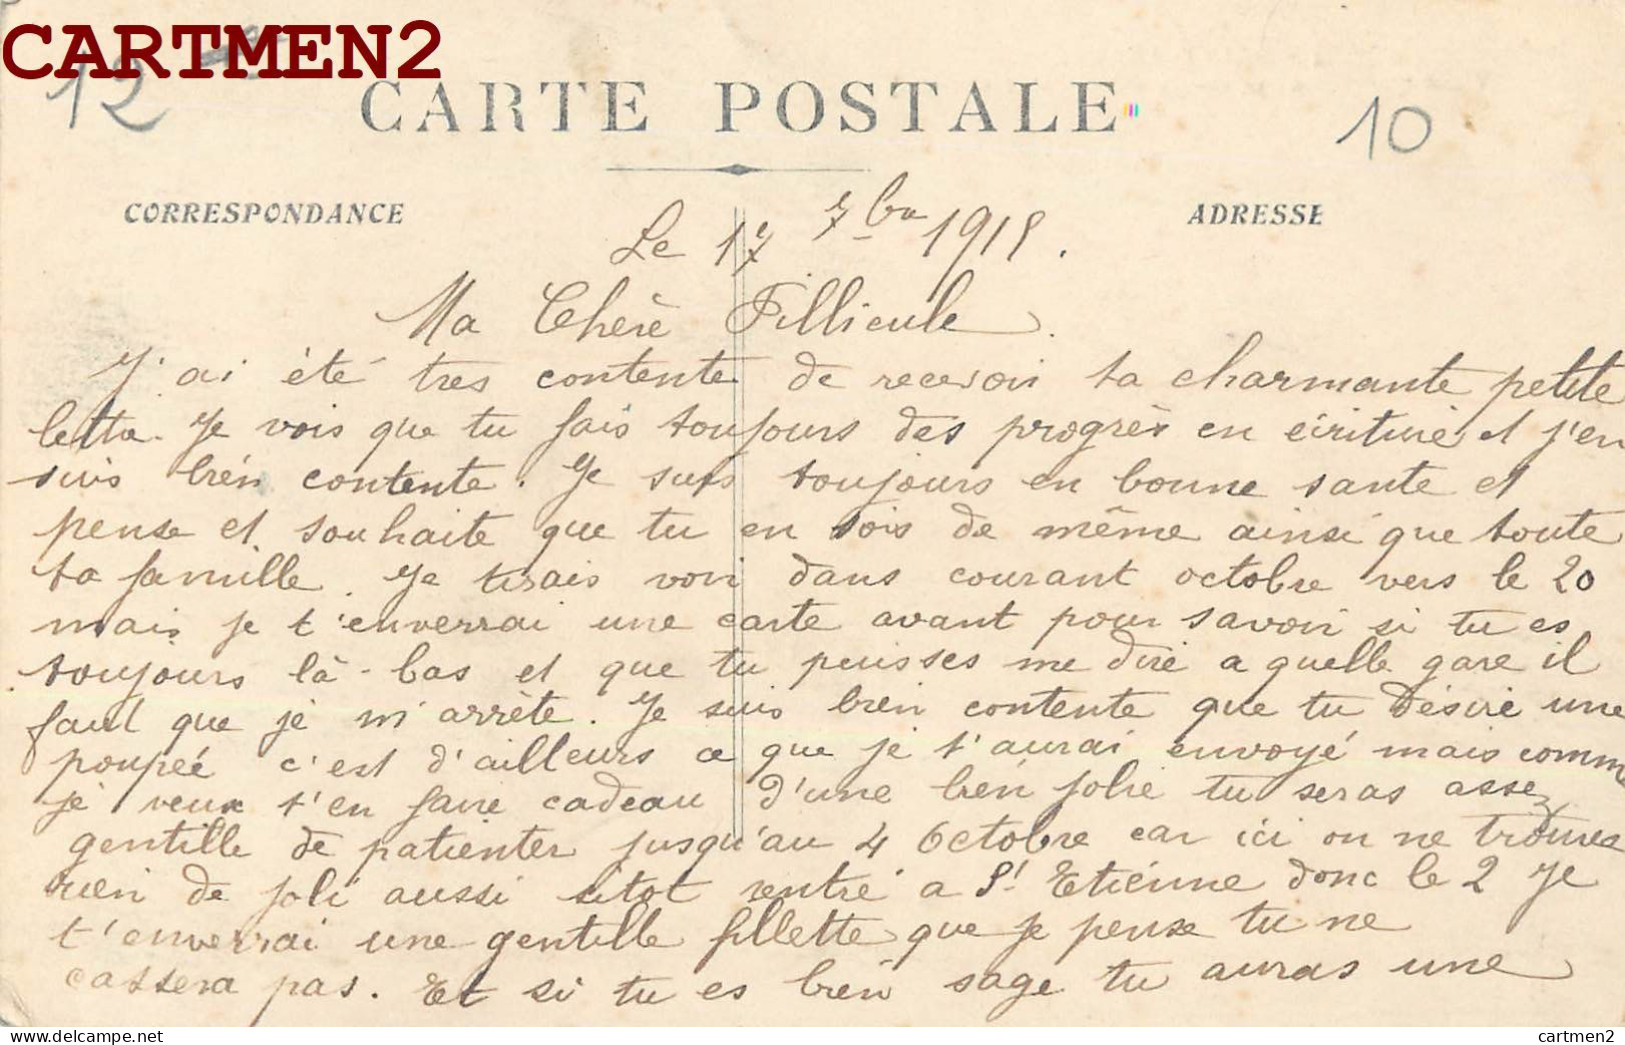 CARTMEN2
12
CARTE POSTALE
10
CORRESPONDANCE
ADRESSE
Le 17 7bre 1915.
Ma Chère Fillieule.
J'ai été tres contente de recevoir ta charmante petite
lettre. Je vois que tu fais toujours des progrès en écriture et j'en
suis bien contente. Je suis toujours en bonne sante et
pense et souhaite que tu en sois de même ainsi que toute
ta famille. Je t'irais voir dans courant octobre vers le 20
mais je t'enverrai une carte avant pour savoir si tu es
toujours là-bas et que tu puisses me dire a quelle gare il
faut que je m'arrète. Je suis bien contente que tu désire une
poupée c'est d'ailleurs ce que je t'aurai envoyé mais comme
je veux t'en faire cadeau d'une bien jolie tu seras assez
gentille de patienter jusqu'au 4 Octobre car ici on ne trouve
rien de joli aussi sitot rentré a St Etienne donc le 2 Je
t'enverrai une gentille fillette que je pense tu ne
cassera pas. Et si tu es bien sage tu auras une
cartmen2